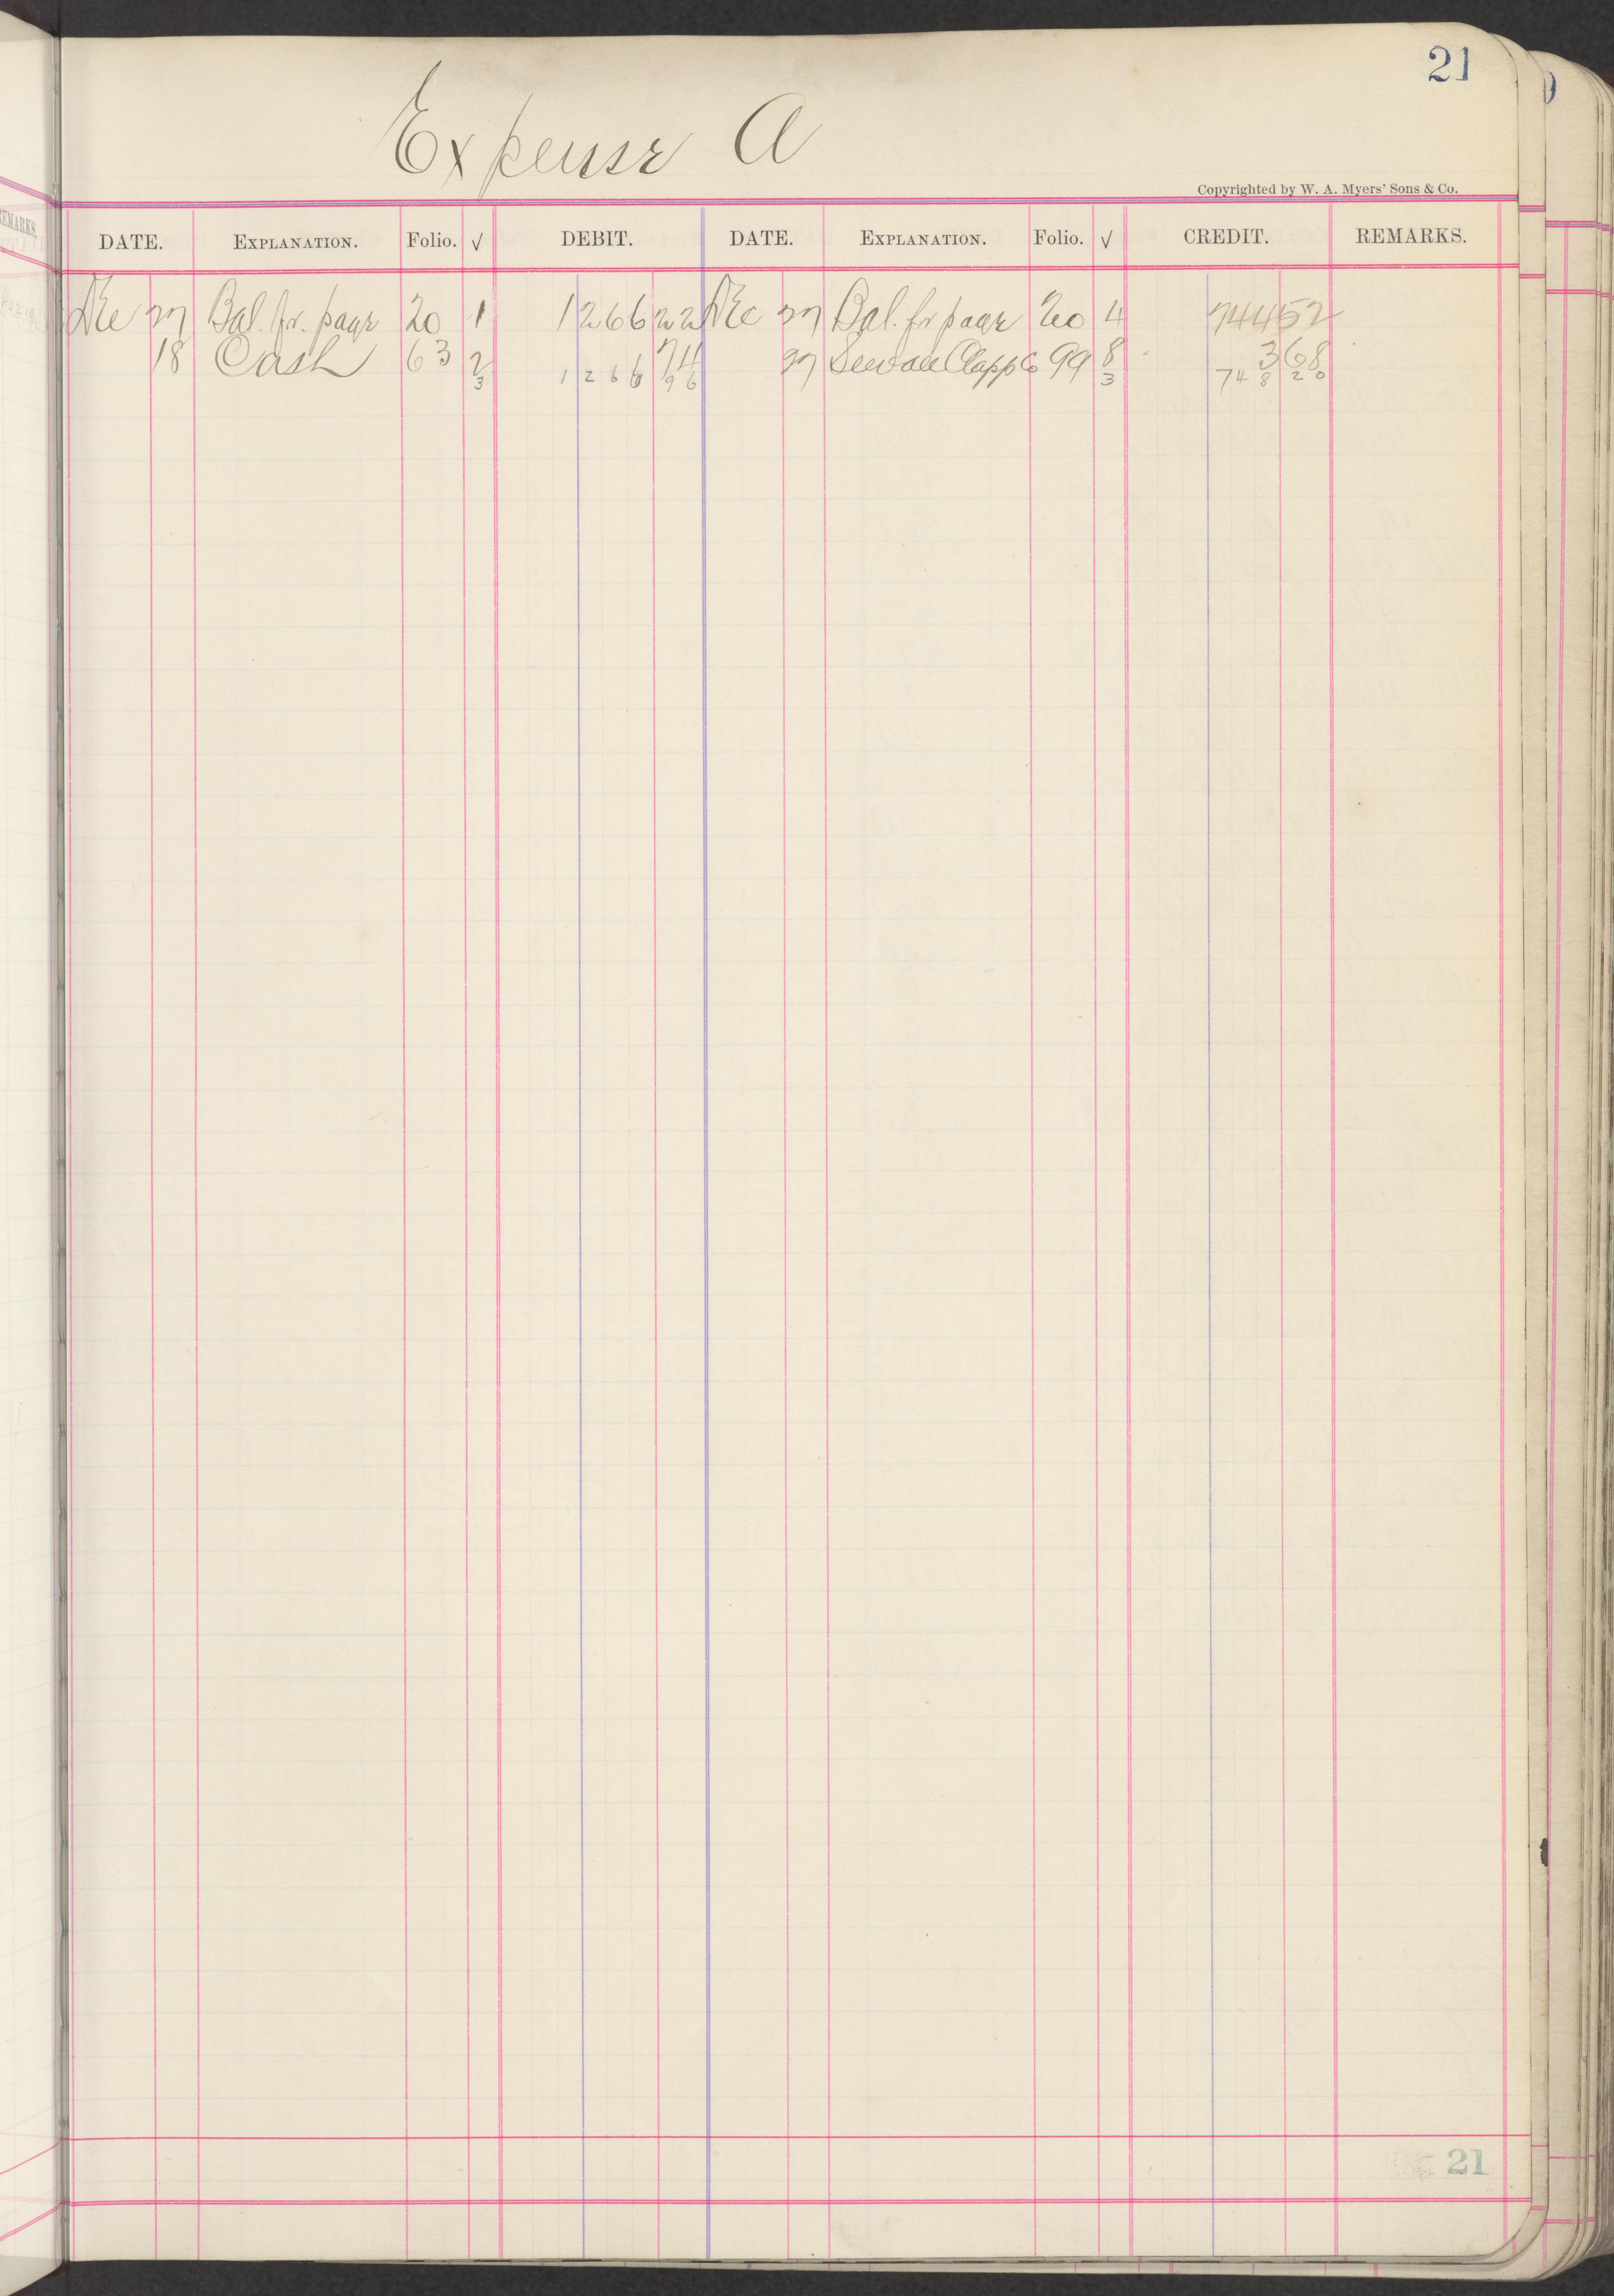 21
Expense A
Copyrighted by W. A. Myers' Sons & Co.
DATE. EXPLANATION. Folio. √ DEBIT. DATE. EXPLANATION. Folio. √ CREDIT. REMARKS.
Dec 27 Bal. fr. page 20 1 1266 22 Dec 27 Bal. fr page 20 4 744 52
18 Cash 63 2 74 27 Sewall Clapp Co 99 8 3 68
3 1266 96 3 748 20
21